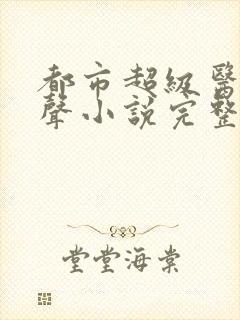 都市超級醫
聲小說完整
堂堂海棠